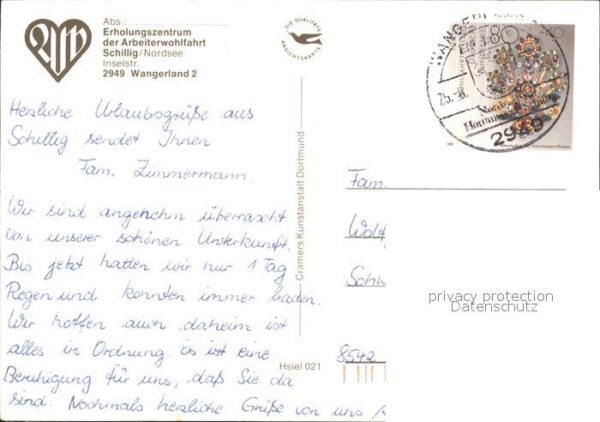 Abs.:
Erholungszentrum
der Arbeiterwohlfahrt
Schillig/Nordsee
Inselstr.
2949 Wangerland 2
DIE QUALITÄTS
ANSICHTSKARTE
80 40
2949
Herzliche Urlaubsgrüße aus
Schillig sendet Ihnen
Fam. Zimmermann.
Wir sind angenehm überrascht
von unserer schönen Unterkunft.
Bis jetzt hatten wir nur 1 Tag
Regen und konnten immer baden.
Wir hoffen auch daheim ist
alles in Ordnung. Es ist eine
Beruhigung für uns, daß Sie da
sind. Nochmals herzliche Grüße von uns
Cramers Kunstanstalt Dortmund
Hsiel 021
Fam.
8542
privacy protection
Datenschutz